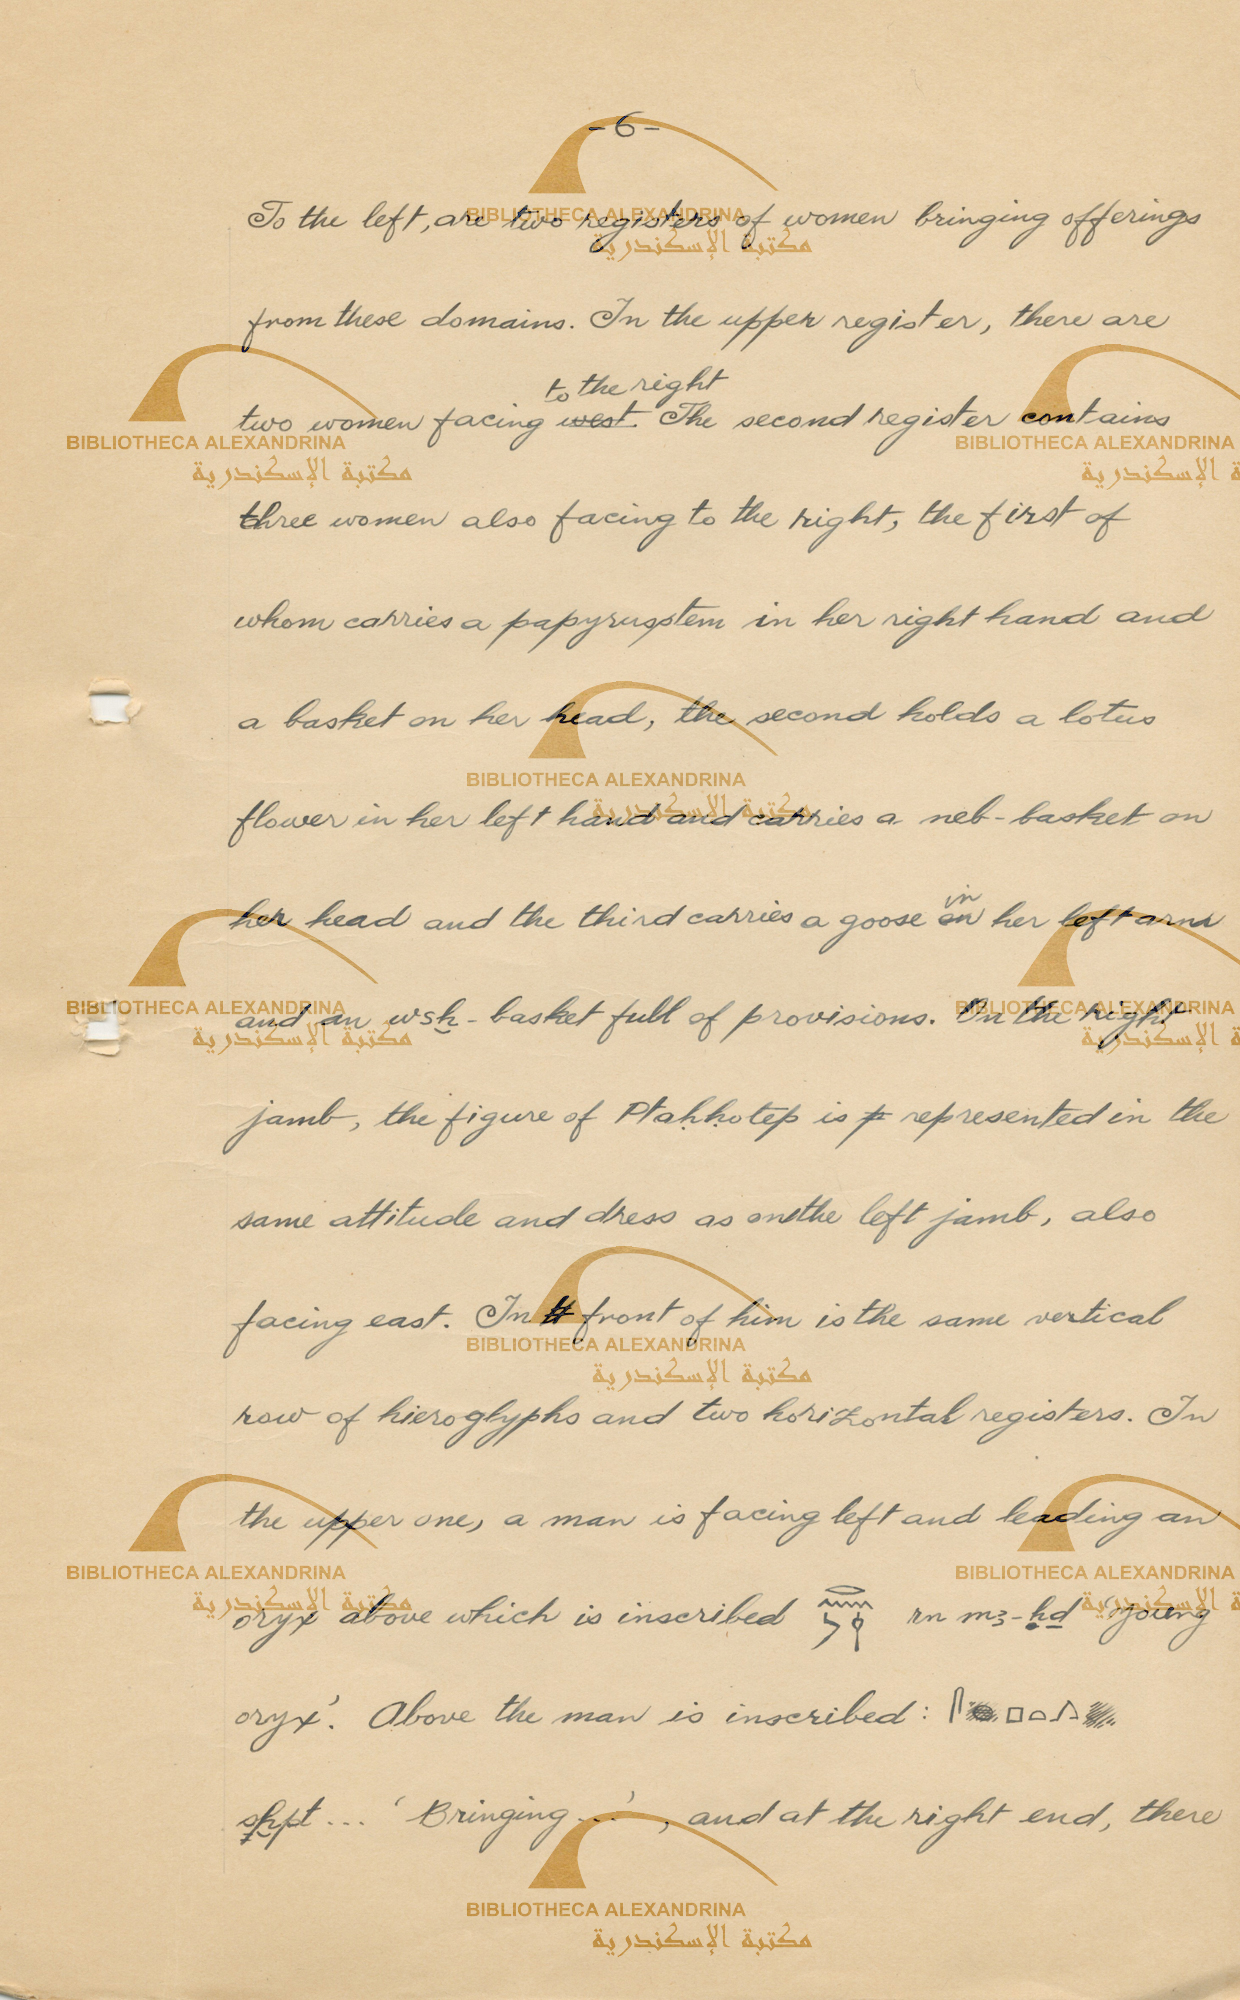 -6-
To the left, are two registers of women bringing offerings
from these domains. In the upper register, there are
to the right
two women facing west. The second register contains
three women also facing to the right, the first of
whom carries a papyrus stem in her right hand and
a basket on her head, the second holds a lotus
flower in her left hand and carries a neb-basket on
in
her head and the third carries a goose on her left arm
and an wsḫ-basket full of provisions. On the right
jamb, the figure of Ptaḥḥotep is p represented in the
same attitude and dress as on the left jamb, also
facing east. In front of him is the same vertical
row of hieroglyphs and two horizontal registers. In
the upper one, a man is facing left and leading an
oryx above which is inscribed 𓂋𓈖𓌳𓌉 rn mꜣ-ḥḏ 'young
oryx'. Above the man is inscribed: 𓋴 𓊪𓏏𓂻
sḫpt ... 'Bringing ...', and at the right end, there
BIBLIOTHECA ALEXANDRINA
مكتبة الإسكندرية